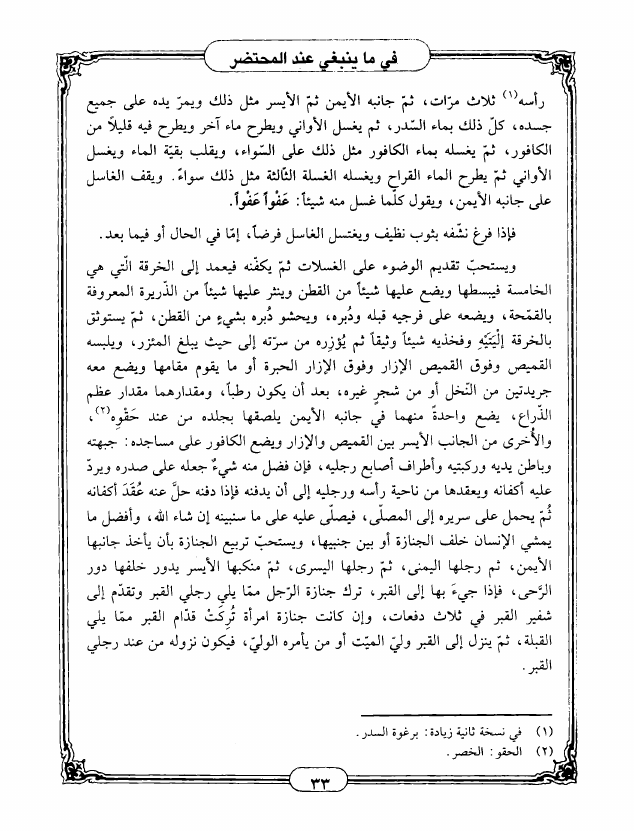 في ما ينبغي عند المحتضر
رأسه(١) ثلاث مرّات، ثمّ جانبه الأيمن ثمّ الأيسر مثل ذلك ويمرّ يده على جميع
جسده، كلّ ذلك بماء السّدر، ثم يغسل الأواني ويطرح ماء آخر ويطرح فيه قليلاً من
الكافور، ثمّ يغسله بماء الكافور مثل ذلك على السّواء، ويقلب بقيّة الماء ويغسل
الأواني ثمّ يطرح الماء القراح ويغسله الغسلة الثّالثة مثل ذلك سواءً. ويقف الغاسل
على جانبه الأيمن، ويقول كلّما غسل منه شيئاً: عَفْواً عَفْواً.
فإذا فرغ نشّفه بثوب نظيف ويغتسل الغاسل فرضاً، إمّا في الحال أو فيما بعد.
ويستحبّ تقديم الوضوء على الغسلات ثمّ يكفّنه فيعمد إلى الخرقة الّتي هي
الخامسة فيبسطها ويضع عليها شيئاً من القطن وينثر عليها شيئاً من الذّريرة المعروفة
بالقمّحة، ويضعه على فرجيه قبله ودُبره، ويحشو دُبره بشيءٍ من القطن، ثمّ يستوثق
بالخرقة إلْيَتَيْهِ وفخذيه شيئاً وثيقاً ثم يُؤزِره من سرّته إلى حيث يبلغ المئزر، ويلبسه
القميص وفوق القميص الإزار وفوق الإزار الحبرة أو ما يقوم مقامها ويضع معه
جريدتين من النّخل أو من شجرٍ غيره، بعد أن يكون رطباً، ومقدارهما مقدار عظم
الذّراع، يضع واحدةً منهما في جانبه الأيمن يلصقها بجلده من عند حَقْوِه(٢)،
والأُخرى من الجانب الأيسر بين القميص والإزار ويضع الكافور على مساجده: جبهته
وباطن يديه وركبتيه وأطراف أصابع رجليه، فإن فضل منه شيءٌ جعله على صدره ويردّ
عليه أكفانه ويعقدها من ناحية رأسه ورجليه إلى أن يدفنه فإذا دفنه حلَّ عنه عُقَدَ أكفانه
ثُمّ يحمل على سريره إلى المصلّى، فيصلّى عليه على ما سنبينه إن شاء الله، وأفضل ما
يمشي الإنسان خلف الجنازة أو بين جنبيها، ويستحبّ تربيع الجنازة بأن يأخذ جانبها
الأيمن، ثم رجلها اليمنى، ثمّ رجلها اليسرى، ثمّ منكبها الأيسر يدور خلفها دور
الرَّحى، فإذا جيءَ بها إلى القبر، ترك جنازة الرّجل ممّا يلي رجلي القبر وتقدّم إلى
شفير القبر في ثلاث دفعات، وإن كانت جنازة امرأة تُرِكَتْ قدّام القبر ممّا يلي
القبلة، ثمّ ينزل إلى القبر وليّ الميّت أو من يأمره الوليّ، فيكون نزوله من عند رجلي
القبر.
(١) في نسخة ثانية زيادة: برغوة السدر.
(٢) الحقو: الخصر.
٣٣